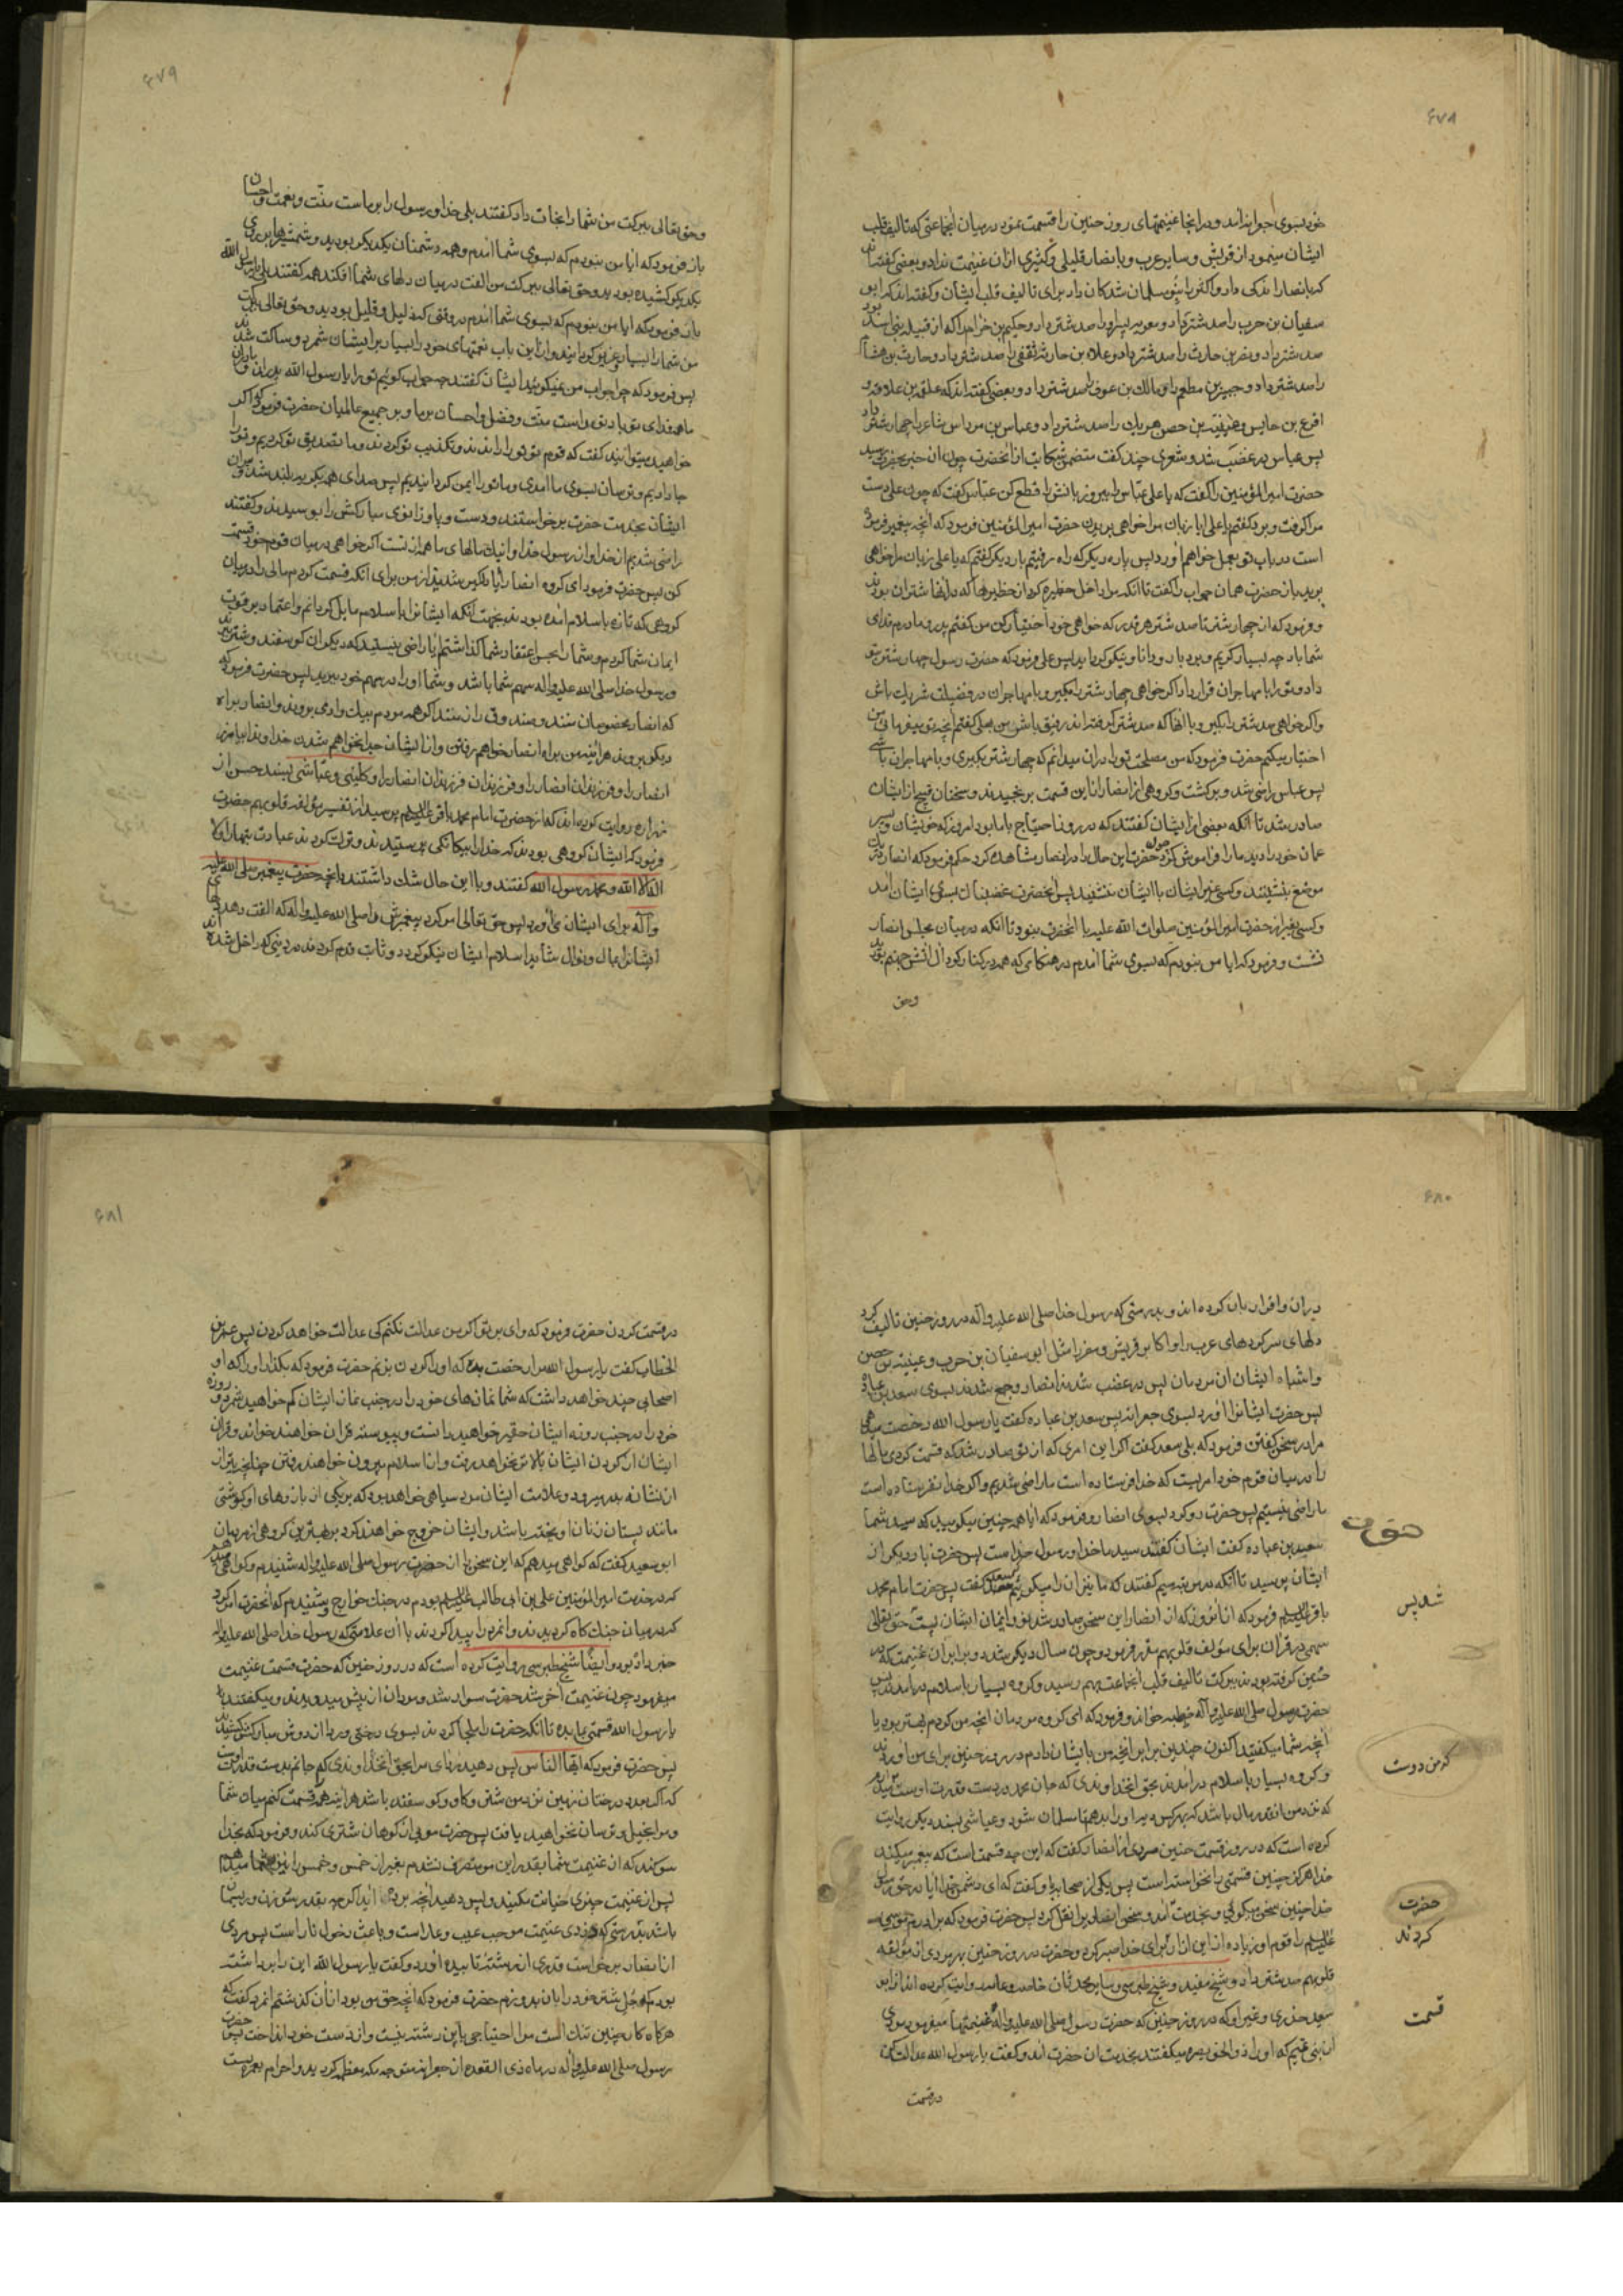 ۶۷۸
خود بسوی جعرانه آمد و در آنجا غنیمتهای روز حنین را قسمت نمود در میان آنجماعتی که تالیف قلب
ایشان مینمود از قریش و سایر عرب و بانصار قلیلی و کثیری ازان غنیمت نداد و بعضی گفته اند
که بانصار اندکی داد و اکثر را بنو مسلمان شدکان داد برای تالیف قلب ایشان و گفته اند که ابو
سفیان بن حرب را صد شتر داد و معویه پسر او را صد شتر داد و حکیم بن خزام را که از قبیله بنی اسد بود
صد شتر داد و نضر بن حارث را صد شتر داد و علاء بن حارثه ثقفی را صد شتر داد و حارث بن هشام
را صد شتر داد و جبیر بن مطعم را و مالک بن عوف را صد شتر داد و بعضی گفته اند که علقمه بن علاقه و
اقرع بن حابس و عیینه بن حصن هر یک را صد شتر داد و عباس بن مرداس شاعر را چهار شتر داد
پس عباس در غضب شد و شعری چند گفت متضمن شکایت از آنحضرت چون آن خبر بحضرت رسید
حضرت امیر المؤمنین را گفت که یا علی عباس را ببر و زبانش را قطع کن عباس گفت که چون علی دست
مرا گرفت و برد گفتم یا علی ایا زبان مرا خواهی برید حضرت امیر المؤمنین فرمود که آنچه پیغمبر فرموده
است در باب تو بعمل خواهم آورد پس پاره دیگر که راه رفتیم بار دیگر گفتم که یا علی زبان مرا خواهی
برید باز حضرت همان جواب را گفت تا آنکه مرا داخل حظیره کرد از حظیرها که در آنها شتران بودند
و فرمود که از چهار شتر تا صد شتر هر قدر که خواهی خود اختیار کن من گفتم پدر و مادرم فدای
شما باد چه بسیار کریم و بردبار و دانا و نیکو کردارید پس علی فرمود که حضرت رسول چهار شتر بتو
داد و تو را با مهاجران قرار داد اگر خواهی چهار شتر را بگیر و با مهاجران در فضیلت شریک باش
و اگر خواهی صد شتر را بگیر و با آنها که صد شتر گرفته اند رفیق باش من بعلی گفتم آنچه تو میفرمائی من
اختیار میکنم حضرت فرمود که من مصلحت تو را دران میدانم که چهار شتر بگیری و با مهاجران باشی
پس عباس راضی شد و برگشت و گروهی از انصار ازین قسمت برنجیدند و سخنان قبیح از ایشان
صادر شد تا آنکه بعضی از ایشان گفتند که در روز احتیاج با ما بود امروز که خویشان و پسر
عمان خود را دید ما را فراموش کرد چون حضرت این حال را در انصار مشاهده کرد حکم فرمود که انصار در یک
موضع بنشینند و کسی غیر ایشان با ایشان ننشیند پس آنحضرت غضبناک بسوی ایشان آمد
و کسی بغیر از حضرت امیر المؤمنین صلوات الله علیه با آنحضرت نبود تا آنکه در میان مجلس انصار
نشست و فرمود که ایا من نبودم که بسوی شما آمدم در هنگامی که همه در کنار گودال آتش جهنم بودید
وحق
۶۷۹
وحق تعالی ببرکت من شما را نجات داد گفتند بلی خدا و رسول را بر ماست منّت و نعمت و احسان
باز فرمود که ایا من نبودم که بسوی شما آمدم و همه دشمنان یکدیگر بودید و شمشیرها بر روی
یکدیگر کشیده بودید و حق تعالی ببرکت من الفت در میان دلهای شما افکند همه گفتند بلی یا رسول الله
باز فرمود که ایا من نبودم که بسوی شما آمدم در وقتی که ذلیل و قلیل بودید و حق تعالی ببرکت
من شما را بسیار و عزیز گردانید و ازاین باب نعمتهای خود را بسیار برایشان شمرد و ساکت شد
پس فرمود که چرا جواب من نمیگوئید ایشان گفتند چه جواب گوئیم تو را یا رسول الله پدران و مادران
ما همه فدای تو باد تو راست منّت و فضل و احسان بر ما و بر جمیع عالمیان حضرت فرمود که اگر
خواهید میتوانید گفت که قوم تو تو را راندند و تکذیب تو کردند و ما تصدیق تو کردیم و تو را
جا دادیم و ترسان بسوی ما آمدی و ما تو را ایمن گردانیدیم پس صدای همه بگریه بلند شد و پیران
ایشان بخدمت حضرت برخواستند و دست و پا و زانوی مبارکش را بوسیدند و گفتند
راضی شدیم از خدا و از رسول خدا و اینک مالهای ما همه از تست اگر خواهی در میان قوم خود قسمت
کن پس حضرت فرمود ای گروه انصار ایا دلگیر شدید از من برای آنکه قسمت کردم مالی را در میان
گروهی که تازه باسلام آمده بودند بجهت آنکه ایشان را باسلام مایل گردانم و اعتماد بر قوت
ایمان شما کردم و شما را بحسن اعتقاد شما گذاشتم ایا راضی نیستید که دیگران گوسفند و شتر برند
و رسول خدا صلی الله علیه و اله سهم شما باشد و شما او را در سهم خود ببرید پس حضرت فرمود که
که انصار مخصوصان منند و صندوق راز منند اگر همه مردم بیک وادی بروند و انصار براه
دیگر بروند هراینه من براه انصار خواهم رفتن و از ایشان جدا نخواهم شدن خداوندا بیامرز
انصار را و فرزندان انصار را و فرزندان فرزندان انصار را و کلینی و عیاشی بسند حسن از
زراره روایت کرده اند که از حضرت امام محمد باقر علیه السلام پرسید از تفسیر مؤلفه قلوبهم حضرت
فرمود که ایشان گروهی بودند که خدا را بیگانگی پرستیدند و ترک کردند عبادت بتها را و لا
اله الا الله و محمد رسول الله گفتند و با این حال شک داشتند در آنچه حضرت پیغمبر صلی الله علیه
و آله برای ایشان می آورد پس حق تعالی امر کرد پیغمبرش را صلی الله علیه و اله که الفت دهد دلهای
ایشان را بمال و نوال شاید اسلام ایشان نیکو گردد و ثابت قدم گردند در دینی که داخل شده اند
۶۸۰
دران و اقرار بان کرده اند و بدرستی که رسول خدا صلی الله علیه و آله در روز حنین تالیف کرد
دلهای سرکردهای عرب را و اکابر قریش و مضر را مثل ابو سفیان بن حرب و عیینه بن حصن
و اشباه ایشان ازمردمان پس در غضب شدند انصار و جمع شدند بسوی سعد بن عباده
پس حضرت ایشانرا آورد بسوی جعرانه پس سعد بن عباده گفت یا رسول الله رخصت میدهی
مرا در سخن گفتن فرمود که بلی سعد گفت اگر این امری که از تو صادر شد که قسمت کردی مالها
را در میان قوم خود امریست که خدا فرستاده است ما راضی شدیم و اگر خدا نفرستاده است
ما راضی نیستیم پس حضرت رو کرد بسوی انصار و فرمود که ایا همه چنین میگویید که سید شما
سعد بن عباده گفت ایشان گفتند سید ما خدا و رسول خداست پس حضرت بار دیگر از
ایشان پرسید تا آنکه در مرتبه سیم گفتند که ما نیز آن را میگوئیم که سعد گفت پس حضرت امام محمد
باقر علیه السلام فرمود که از آنروز که از انصار این سخن صادر شد نور ایمان ایشان پست حق تعالی
سهمی در قران برای مؤلفه قلوبهم مقرر فرمود و چون سال دیگر شد دو برابر آن غنیمت که در
حنین گرفته بودند ببرکت تالیف قلب آنجماعت بهم رسید و گروه بسیار باسلام درآمدند پس
حضرت رسول صلی الله علیه و آله خطبه خواند و فرمود که ای گروه مردمان آنچه من کردم بهتر بود یا
آنچه شما میگفتید اکنون چندین برابر آنچه من بایشان دادم در روز حنین برای من آوردند
و گروه بسیار باسلام درآمدند بحق آنخداوندی که جان محمد در دست قدرت اوست میخواهم
که نزد من آنقدر مال باشد که بهر کس دیه او را بدهم تا مسلمان شود و عیاشی بسند دیگر روایت
کرده است که در روز قسمت حنین مردی از انصار گفت که این چه قسمت است که پیغمبر میکند
خدا هرگز چنین قسمتی را نخواسته است پس یکی از صحابه باو گفت که ای دشمن خدا ایا در حق رسول
خدا چنین سخن میگوئی و بخدمت آمد و سخن انصاری را نقل کرد پس حضرت فرمود که برادرم موسی
علیه السلام را قوم او زیاده ازاین آزار کردند برای خدا صبر کرد و حضرت در روز حنین بهر مردی از مؤلفه
قلوبهم صد شتر داد و شیخ مفید و شیخ طبرسی و سایر محدثان خاصه و عامه روایت کرده اند از ابو
سعید خدری و غیر او که در روز حنین که حضرت رسول صلی الله علیه و اله غنیمتها میفرمود مردی
از بنی تمیم که او را ذو الخویصره میگفتند بخدمت آن حضرت آمد و گفت یا رسول الله عدالت کن
در قسمت
شد پس
که من دوست
حضرت
کردند
قسمت
۶۸۱
در قسمت کردن حضرت فرمود که وای بر تو اگر من عدالت نکنم کی عدالت خواهد کردن پس عمر بن
الخطاب گفت یا رسول الله مرا رخصت بده که او را گردن بزنم حضرت فرمود که بگذار او را که او
اصحابی چند خواهد داشت که شما نمازهای خود را در جنب نماز ایشان کم خواهید شمرد و روزه
خود را در جنب روزه ایشان حقیر خواهید دانست و پیوسته قران خواهند خواند و قران
ایشان از گردن ایشان بالاتر نخواهد رفت و از اسلام بیرون خواهند رفتن چنانچه تیر از
از نشانه بدر میرود و علامت ایشان مرد سیاهی خواهد بود که بر یکی از بازوهای او گوشتی
مانند پستان زنان آویخته باشد و ایشان خروج خواهند کرد بر بهترین گروهی از مردمان
ابو سعید گفت که گواهی میدهم که این سخن را از حضرت رسول صلی الله علیه و اله شنیدم و گواهی میدهم
که در خدمت امیر المؤمنین علی بن ابی طالب علیه السلام بودم در جنک خوارج و شنیدم که آنحضرت امر کرد
که در میان جنک گاه گردیدند و آنمرد را پیدا کردند با آن علامتی که رسول خدا صلی الله علیه و اله
خبر داده بود و ایضا شیخ طبرسی روایت کرده است که در روز حنین که حضرت قسمت غنیمت
میفرمود چون غنیمت آخر شد حضرت سوار شد و مردان از پیش میدویدند و میگفتند
یا رسول الله قسمتی بما بده تا آنکه حضرت را ملجا کردند بسوی درختی و ردا از دوش مبارکش کشیدند
پس حضرت فرمود که ایها الناس پس دهید ردای مرا بحق آنخداوندی که جانم بدست قدرت اوست
که اگر بعدد درختان زمین نزد من شتر و گاو و گوسفند باشد هراینه همه را قسمت کنم میان شما
و مرا بخیل و ترسان نخواهید یافت پس حضرت موئی از کوهان شتری کند و فرمود که بخدا
سوگند که از غنیمت شما بقدر این مو متصرف نشدم بغیر از خمس و خمس را نیز بشما میدهم
پس از غنیمت چیزی خیانت مکنید و پس دهید آنچه برده اید اگرچه بقدر سوزن و ریسمان
باشد بدرستی که دزدی غنیمت موجب عیب و عار است و باعث دخول نار است پس مردی
از انصار برخواست قدری از رشته تابیده آورد و گفت یا رسول الله این را برداشته
بودم که جل شتر خود را بان بدوزم حضرت فرمود که آنچه حق من بود ازان گذشتم آنمرد گفت که
هرگاه کار چنین تنک است مرا احتیاجی باین رشته نیست و از دست خود انداخت پس حضرت
رسول صلی الله علیه و اله در ماه ذی القعده از جعرانه متوجه مکه معظمه گردید و احرام بعمره بست